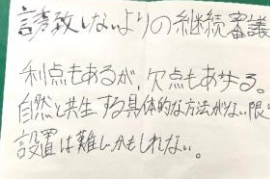 誘致しないよりの継続審議
利点もあるが、欠点もある。
自然と共生する具体的な方法がない限
設置は難しいかもしれない。